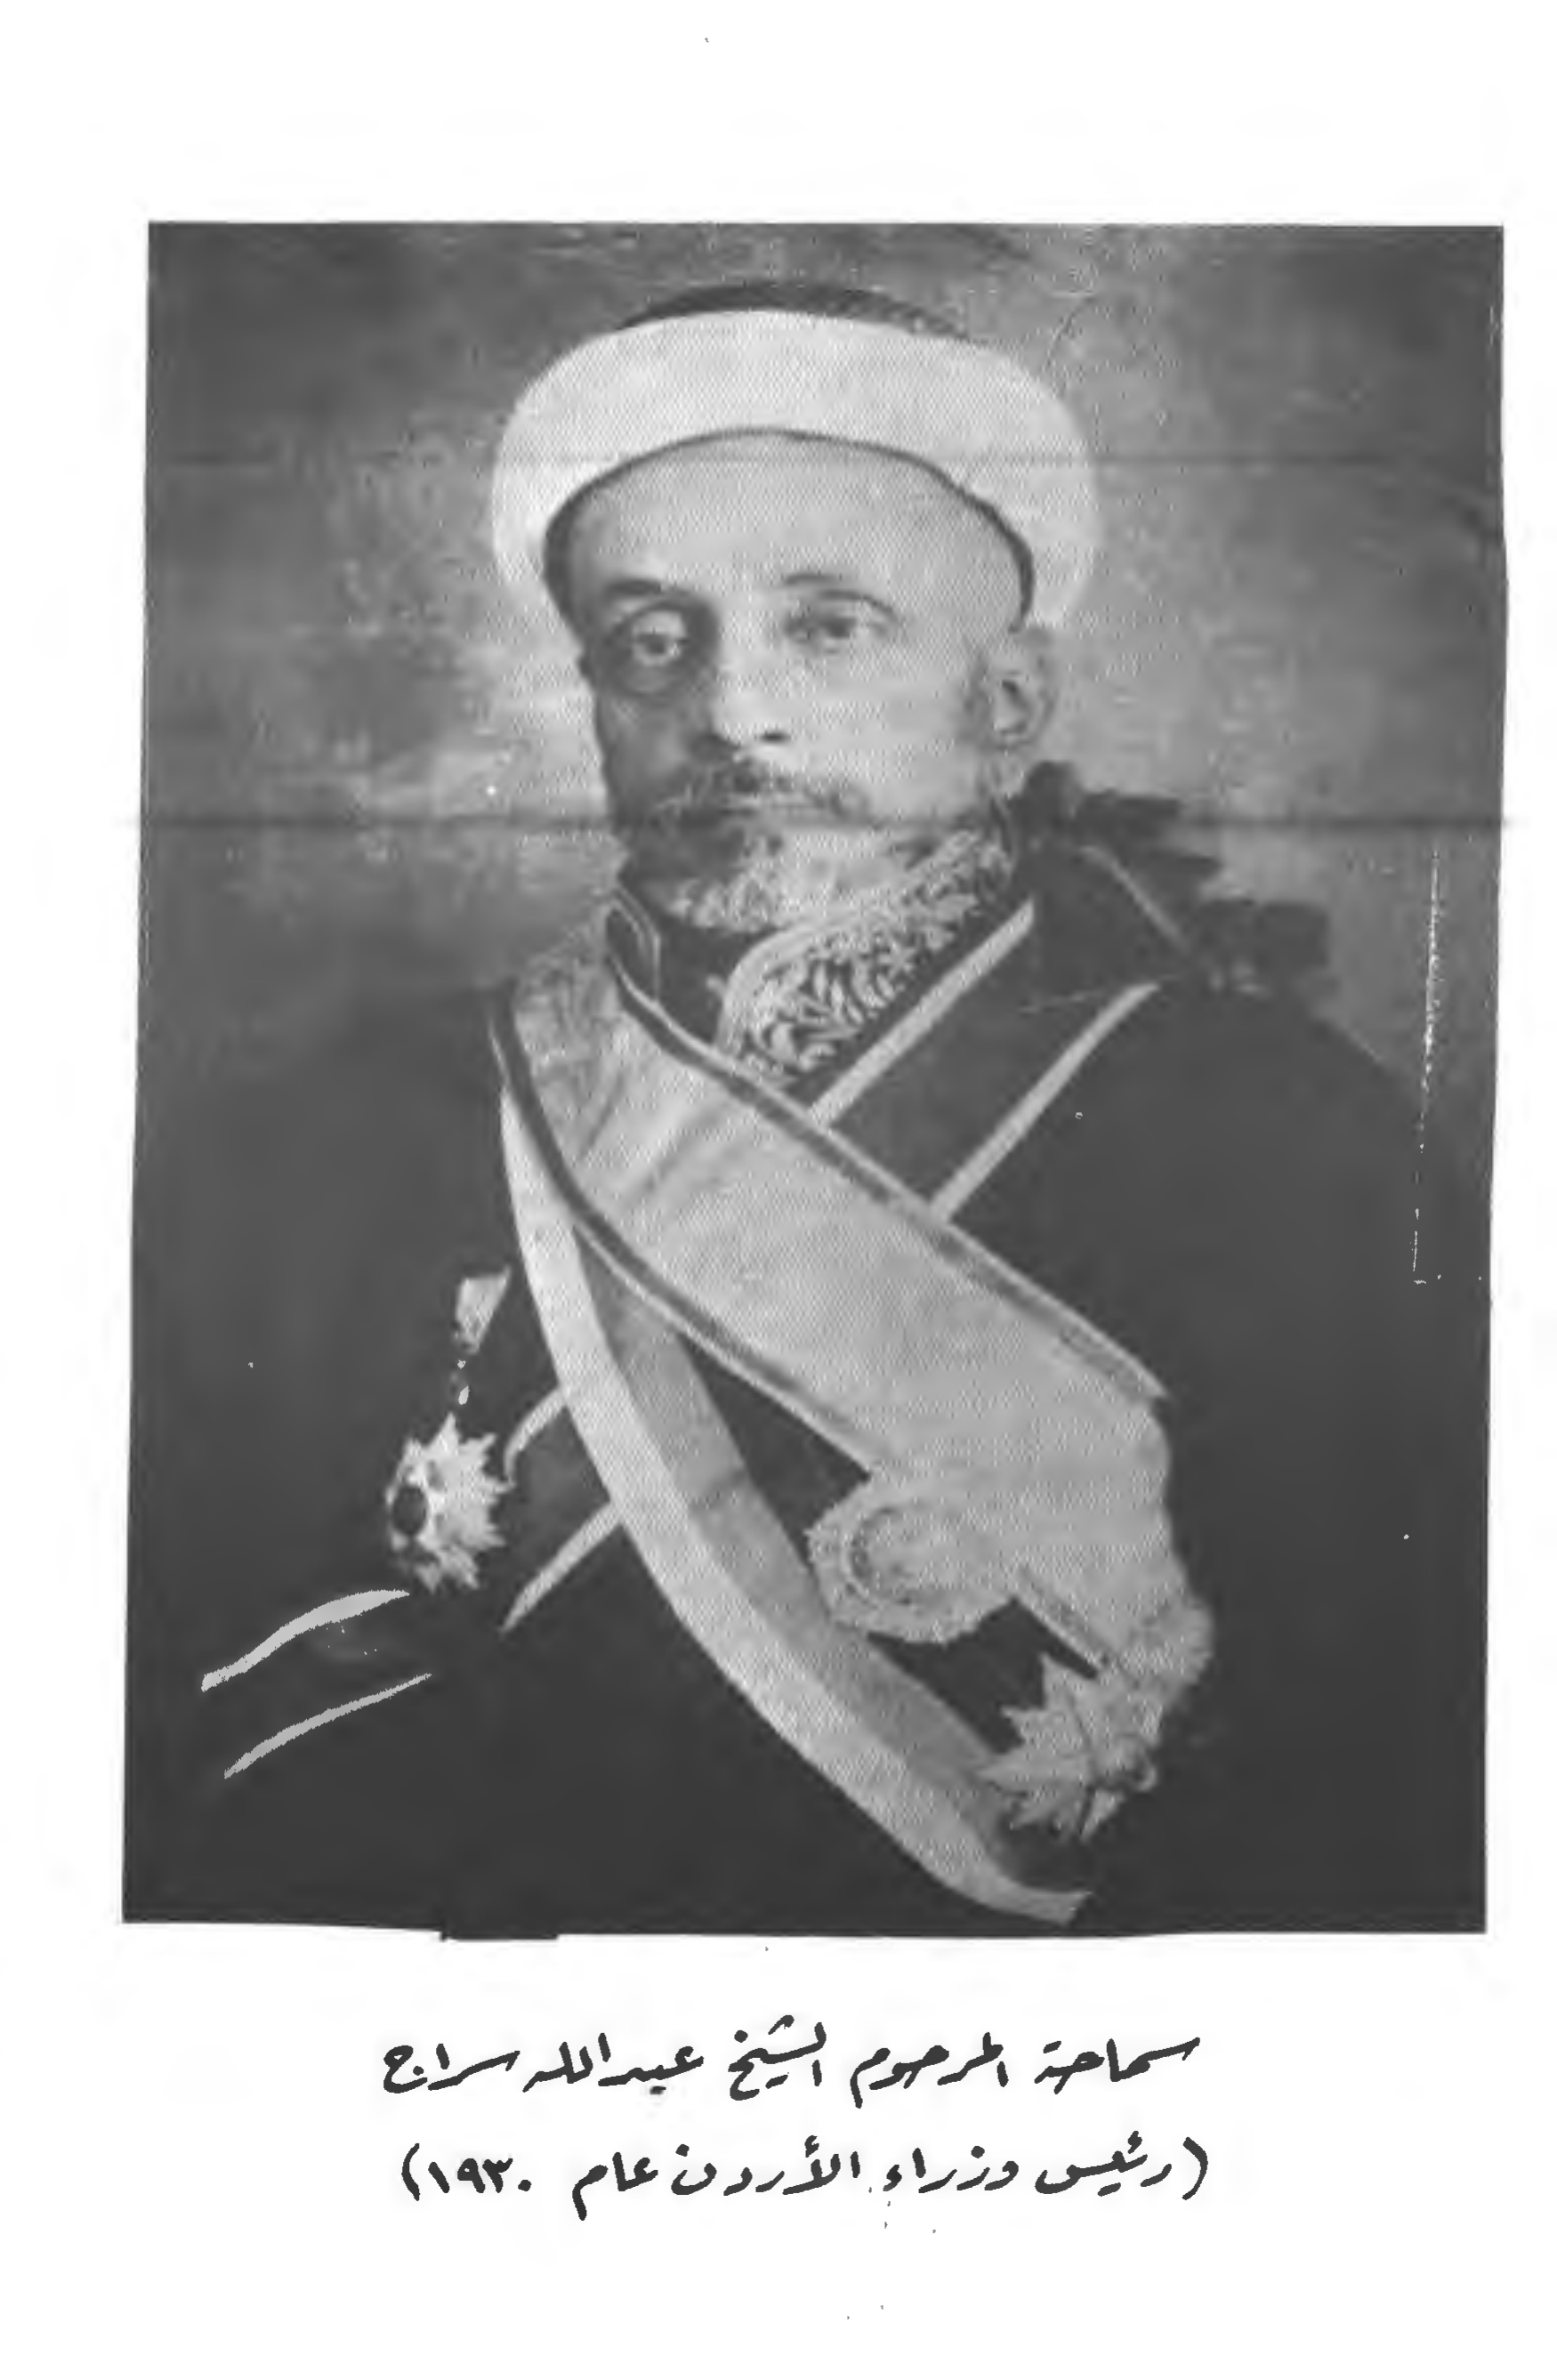 سماحة المرحوم الشيخ عبدالله سراج
(رئيس وزراء الأردن عام ١٩٣٠)